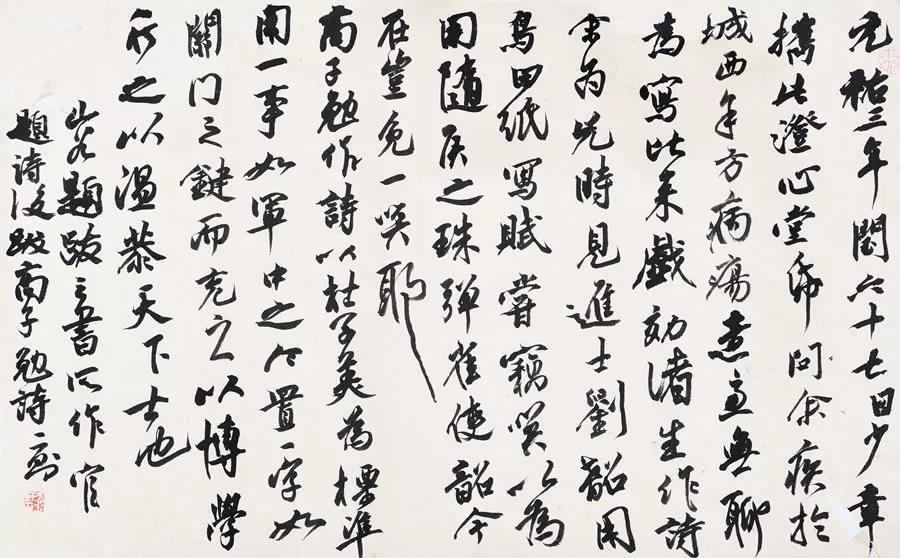 元祐三年閏六十七日少章
攜此澄心堂紙問余疾於
城西年方病瘍意無聊
為寫此來戲效諸生作詩
余為兒時見進士劉韶用
烏田紙寫賦嘗竊笑以為
用隨侯之珠彈雀使韶今
在豈免一笑耶
高子勉作詩以杜子美為標準
用一事如軍中之令置一字如
關門之鍵而充之以博學
行之以溫恭天下士也
山谷題跋書作官
題詩後跋高子勉詩